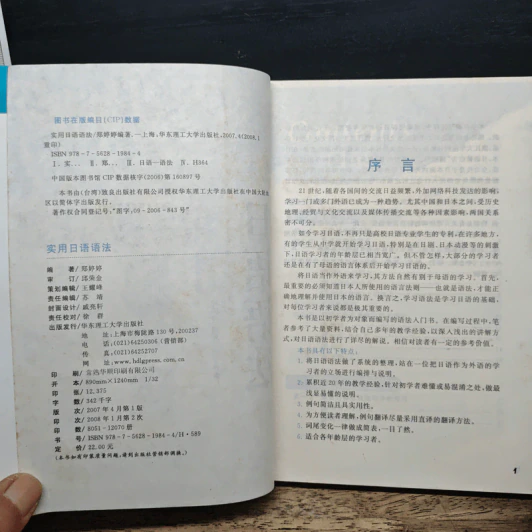 图书在版编目(CIP)数据
实用日语语法/郑婷婷编著.—上海:华东理工大学出版社,2007.4(2008.1
重印)
ISBN 978-7-5628-1984-4
Ⅰ.实… Ⅱ.郑… Ⅲ.日语—语法 Ⅳ.H364
中国版本图书馆 CIP 数据核字(2006)第 160897 号
本书由(台湾)致良出版社有限公司授权华东理工大学出版社在中国大陆地
区以简体字出版发行。
著作权合同登记号:“图字:09-2006-843 号”
实用日语语法
编 著/郑婷婷
审 订/邱荣金
策划编辑/王耀峰
责任编辑/苏 靖
封面设计/戚亮轩
责任校对/徐 群
出版发行/华东理工大学出版社
地 址:上海市梅陇路 130 号,200237
电 话:(021)64250306(营销部)
传 真:(021)64252707
网 址:www.hdlgpress.com.cn
印 刷/
开 本/890mm×1240mm 1/32
印 张/12.375
字 数/342 千字
版 次/2007 年 4 月第 1 版
印 次/2008 年 1 月第 2 次
印 数/8051-12070 册
书 号/ISBN 978-7-5628-1984-4/H·589
定 价/22.00 元
(本书如有印装质量问题,请到出版社营销部调换。)
序 言
21 世纪,随着各国间的交流日益频繁,外加网络科技发达的影响,
学习一门或多门外语已成为一种趋势。尤其中国和日本之间,受历史
地理、经贸与文化交流以及媒体传播交流等各种因素影响,两国关系
密不可分。
如今学习日语,不再只是高校日语专业学生的专利,在许多地方,
有的学生从中学就开始学习日语,特别是在日剧、日本动漫等的刺激
下,日语学习者的年龄层已相当宽广。但不管怎样,大部分的学习者
还是在有了母语的语言体系后开始学习日语的。
将日语当作外语来学习,其方法自然有别于母语的学习。首先,
最重要的必须知道日本人所使用的语言法则——也就是语法,才能正
确地理解并使用日本的语言。换言之,学习语法是学习日语的基础,
对每位学习者来说都是极其重要的。
本书是以初学者为对象而编写的语法入门书。在编写过程中,笔
者参考了大量资料,结合自己多年的教学经验,以深入浅出的讲解方
式,对日语语法进行了详尽的解说。相信对读者有一定的参考价值。
本书具有以下特点:
1. 将日语语法做了系统的整理,站在一位把日语作为外语的学
习者的立场进行编排与说明。
2. 累积近 20 年的教学经验,针对初学者难懂或易混淆之处,做最
浅显易懂的说明。
3. 例句简洁且具实用性。
4. 为方便读者理解,例句翻译尽量采用直译的翻译方法。
5. 词尾变化一律做成简表,一目了然。
6. 适合各年龄层的学习者。
1